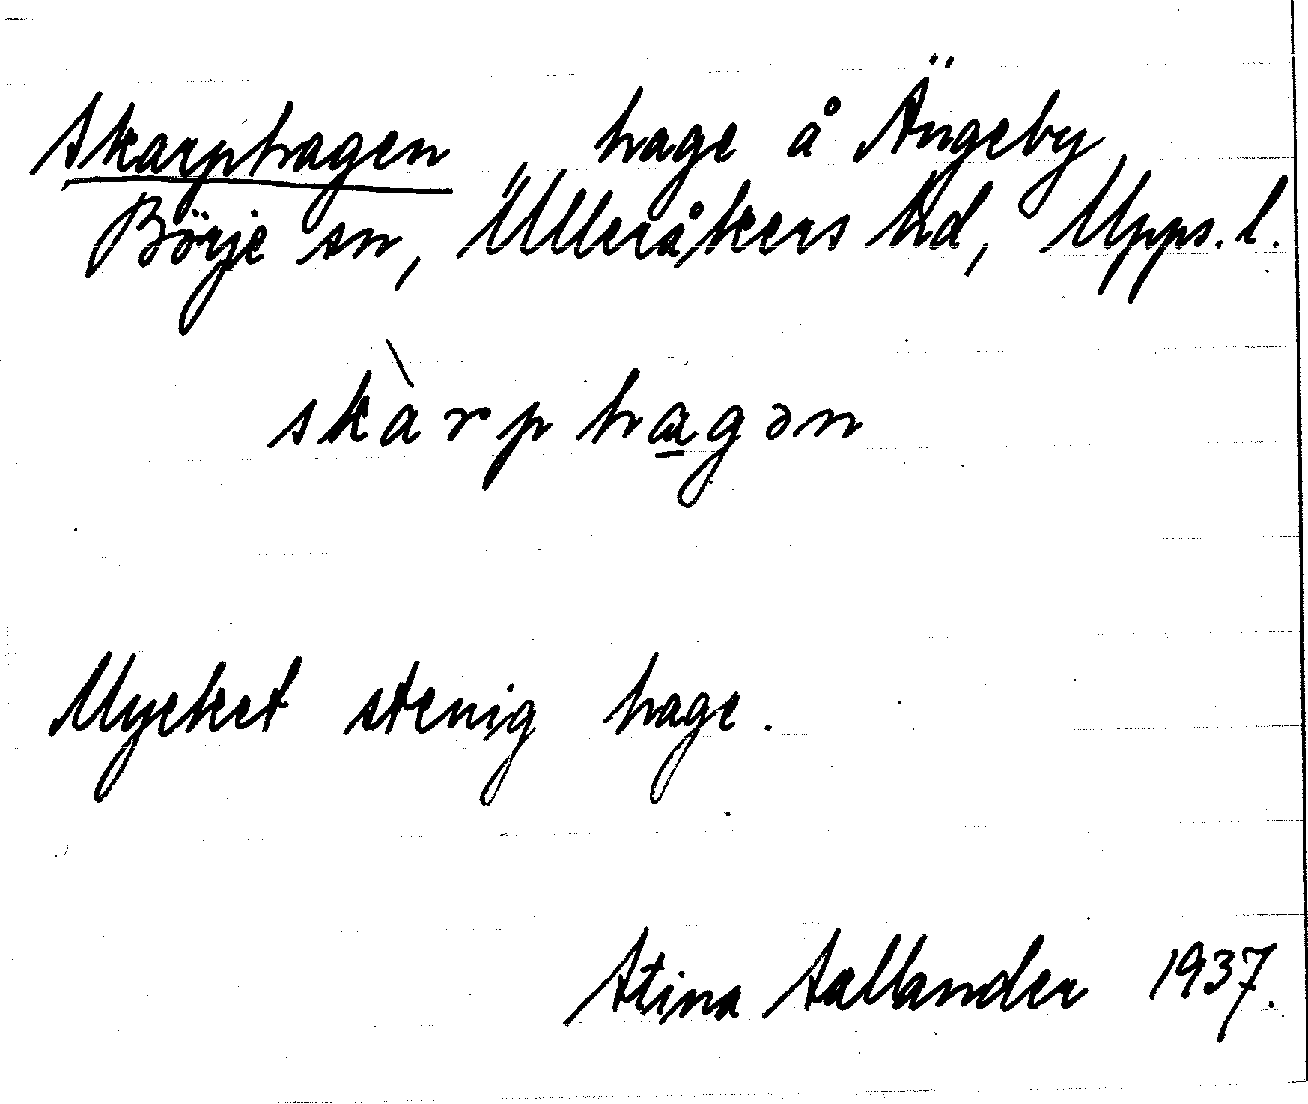 Skarphagen, hage å Ängeby,
Börje sn, Ulleråkers hd, Upps. l.
skàrphagən
Mycket stenig hage.
Stina Sallander 1937.